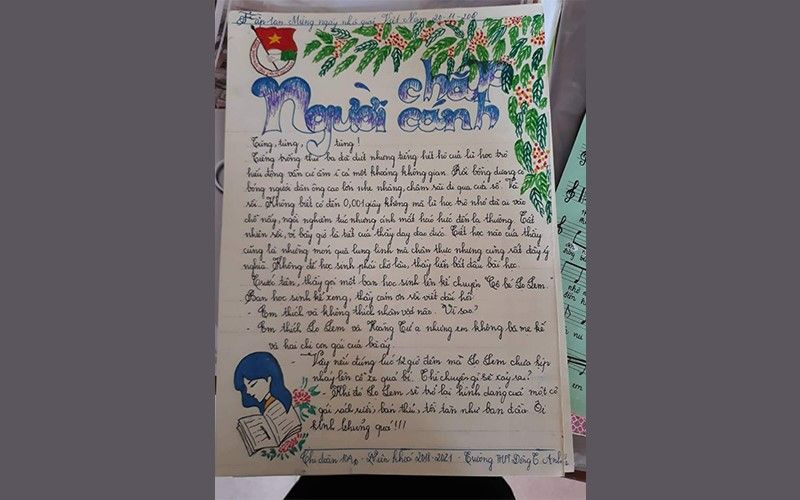 Tập san Mừng ngày nhà giáo Việt Nam 20-11-
chắp
Người cánh
Tùng, tùng, tùng!
Tiếng trống thứ ba đã dứt nhưng tiếng hét hò của lũ học trò
hiếu động vẫn cứ ầm ĩ cả một khoảng không gian. Rồi bỗng dưng có
bóng người đàn ông cao lớn nhẹ nhàng, chậm rãi đi qua cửa sổ. Và
rồi... Không biết có đến 0,001 giây không mà lũ học trò nhỏ đã ai vào
chỗ nấy, ngồi nghiêm túc nhưng ánh mắt háo hức đến lạ thường. Tất
nhiên rồi, vì bây giờ là tiết của thầy dạy đạo đức. Tiết học nào của thầy
cũng là những món quà lung linh mà chân thực nhưng cũng rất đầy ý
nghĩa. Không để học sinh phải chờ lâu, thầy liền bắt đầu bài học.
Trước tiên, thầy gọi một bạn học sinh lên kể chuyện Cô bé Lọ Lem.
Bạn học sinh kể xong, thầy cảm ơn rồi viết câu hỏi
- Em thích và không thích nhân vật nào. Vì sao?
- Em thích Lọ Lem và Hoàng Tử ạ nhưng em không bà mẹ kế
và hai chị con gái của bà ấy.
- Vậy nếu đúng lúc 12 giờ đêm mà Lọ Lem chưa kịp
nhảy lên cỗ xe quả bí. Thì chuyện gì sẽ xảy ra?
- Khi đó Lọ Lem sẽ trở lại hình dạng của một cô
gái rách rưới, bẩn thỉu, tồi tàn như ban đầu. Ôi
kinh khủng quá!!!
Chi đoàn - Niên khoá 2018-2021 - Trường THPT Đông